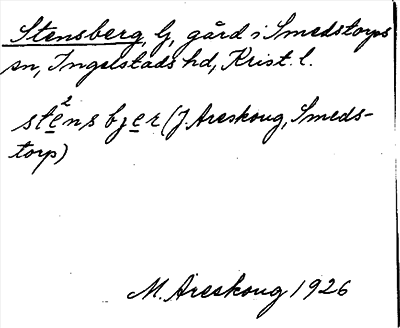 Stensberg, G, gård i Smedstorps
sn, Ingelstads hd, Krist. l.
ste²ns bjer (J. Areskoug, Smeds-
torp)
M. Areskoug 1926